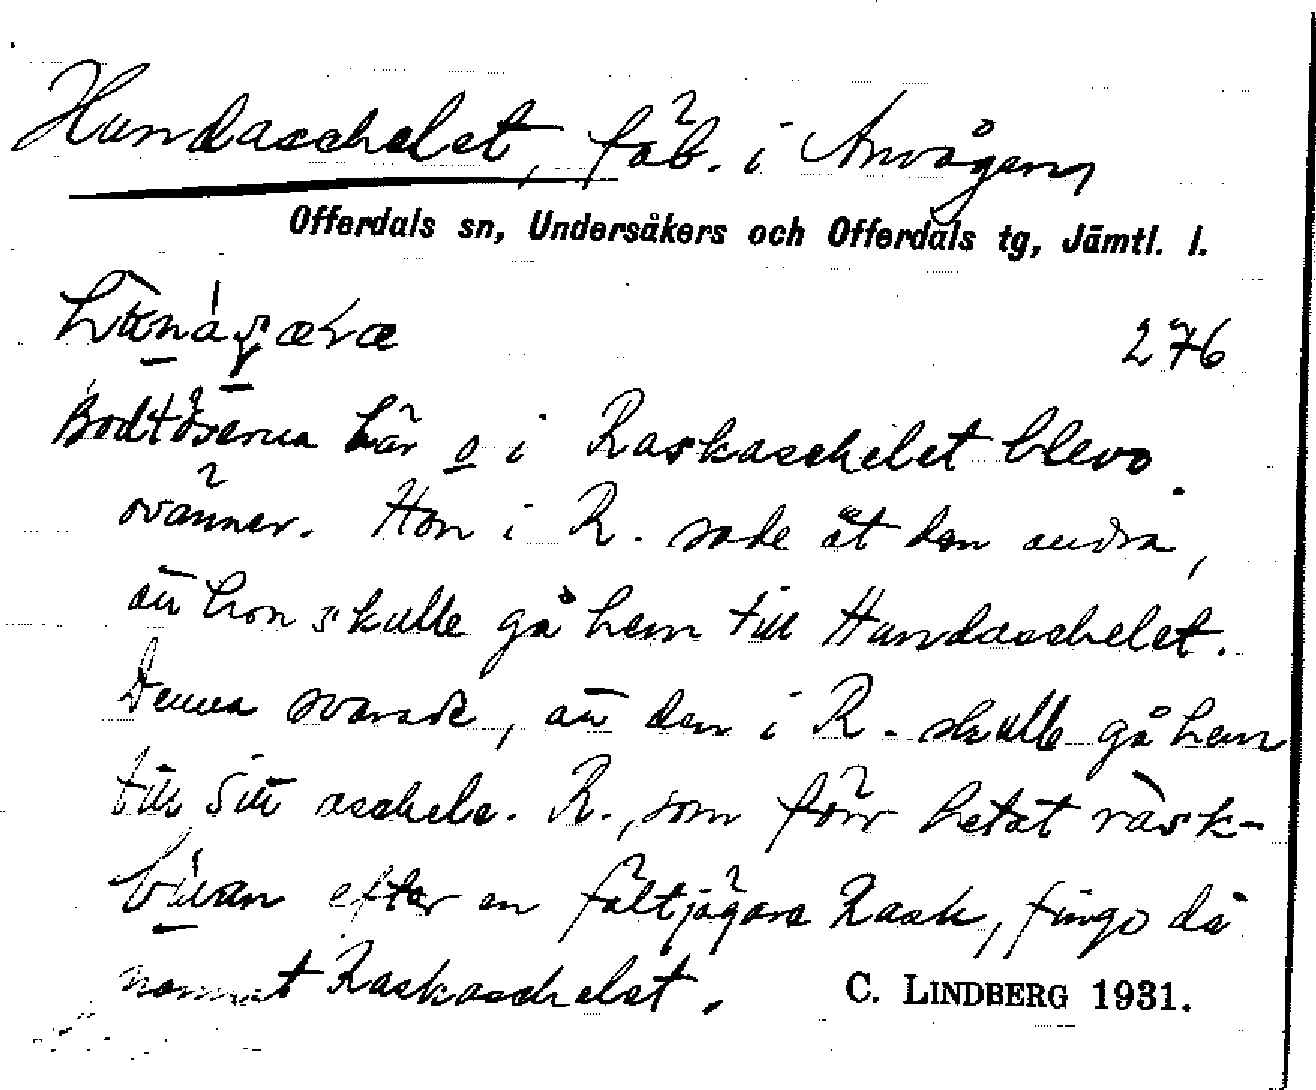 Handaschelet, fäb. i Änvågen
Offerdals sn, Undersåkers och Offerdals tg, Jämtl. l.
276
Bodtöserna här o i Raskaschelet blevo
ovänner. Hon i R. sade åt den andra,
att hon skulle gå hem till Handaschelet.
Denna svarade, att den i R. skulle gå hem
till sitt aschele. R., som förr hetat råsk-
efter en fältjägare Rask, fingo då
namnet Raskaschelet.
C. LINDBERG 1931.